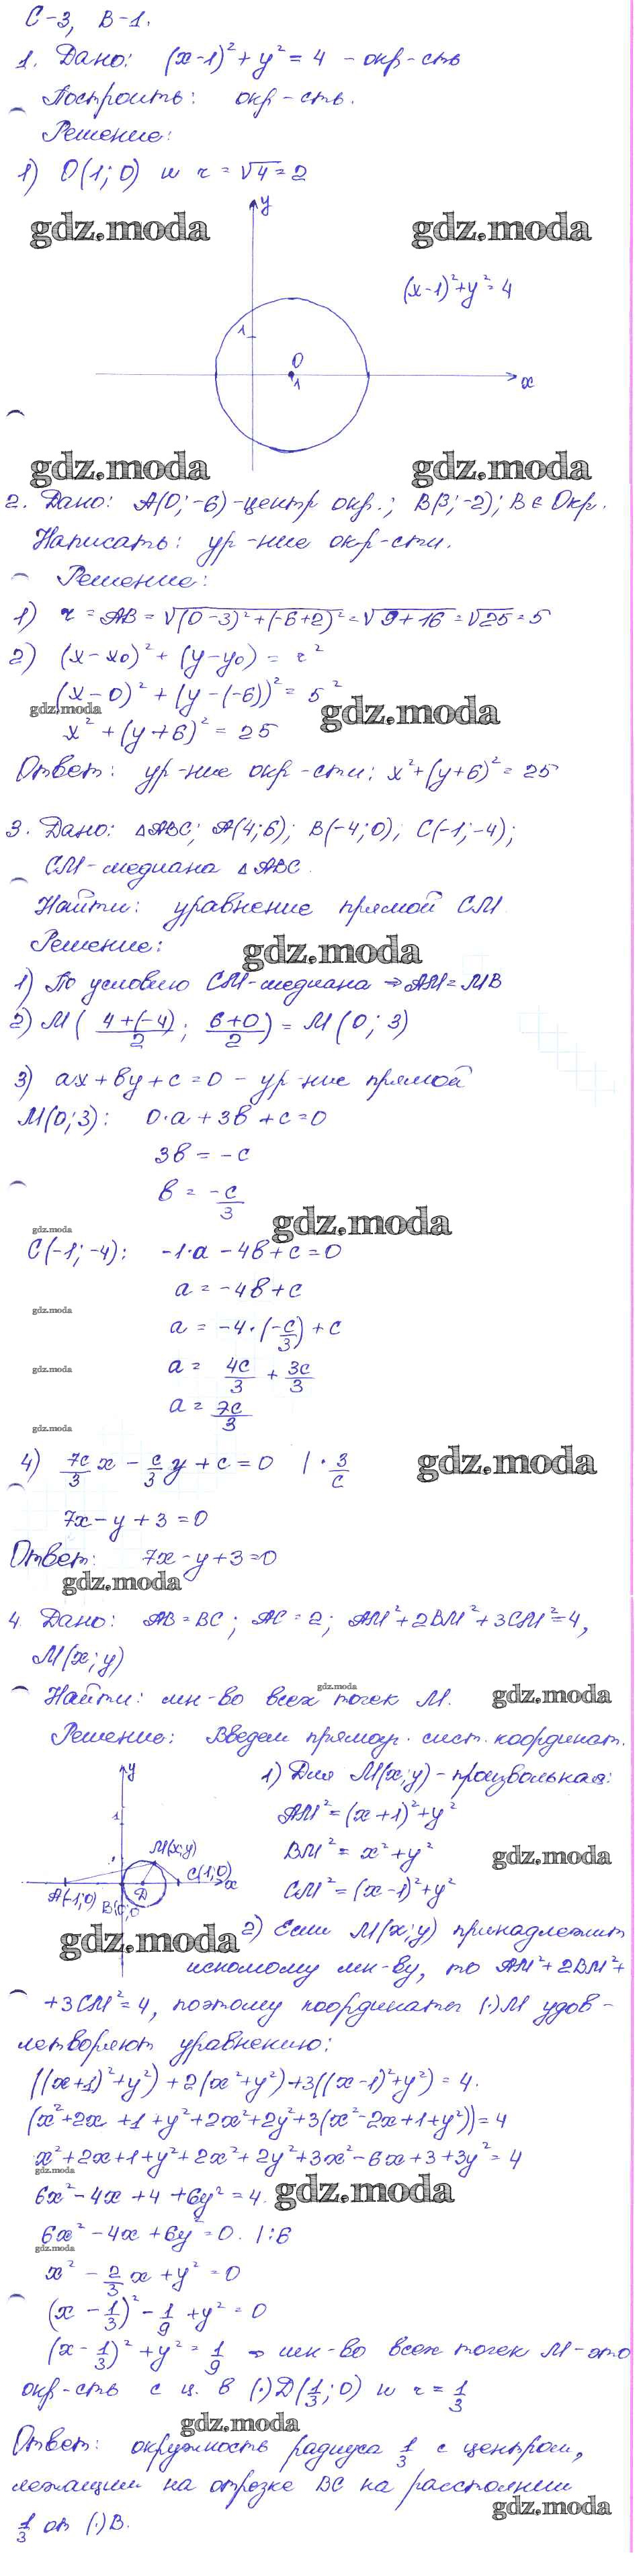 С-3, В-1.
1. Дано: (x-1)² + y² = 4 - окр-сть
Построить: окр-сть.
Решение:
1) O(1; 0) и r = √4 = 2
y
gdz.moda gdz.moda
(x-1)²+y²=4
1
O
1
x
gdz.moda gdz.moda
2. Дано: A(0; -6)-центр окр.; B(3; -2); B ∈ Окр.
Написать: ур-ние окр-сти.
Решение:
1) r = AB = √(0-3)²+(-6+2)² = √9+16 = √25 = 5
2) (x-x₀)² + (y-y₀) = r²
(x-0)² + (y-(-6))² = 5²
gdz.moda gdz.moda
x² + (y+6)² = 25
Ответ: ур-ние окр-сти: x²+(y+6)² = 25
3. Дано: △ABC; A(4; 6); B(-4; 0); C(-1; -4);
CM-медиана △ABC.
Найти: уравнение прямой CM
Решение:
gdz.moda
1) По условию CM-медиана ⇒ AM = MB
2) M( 4+(-4)/2 ; 6+0/2 ) = M(0; 3)
3) ax+by+c=0 - ур-ние прямой
M(0; 3): 0·a + 3b + c = 0
3b = -c
b = -c/3
gdz.moda gdz.moda
C(-1; -4): -1·a - 4b + c = 0
a = -4b + c
gdz.moda
a = -4·(-c/3) + c
gdz.moda
a = 4c/3 + 3c/3
a = 7c/3
gdz.moda
4) 7c/3 x - c/3 y + c = 0 | · 3/c
gdz.moda
7x - y + 3 = 0
Ответ: 7x - y + 3 = 0
gdz.moda
4. Дано: AB = BC; AC = 2; AM²+2BM²+3CM²=4,
M(x; y)
gdz.moda
Найти: мн-во всех точек M.
gdz.moda
Решение: Введем прямоуг. сист. координат.
y
1) Для M(x; y)-произвольная:
1
AM² = (x+1)²+y²
M(x;y)
BM² = x²+y²
gdz.moda
C(1; 0)
x
A(-1; 0)
D
CM² = (x-1)²+y²
B(0; 0
2) Если M(x; y) принадлежит
gdz.moda
искомому мн-ву, то AM²+2BM²+
+3CM²=4, поэтому координаты (·)M удов-
летворяют уравнению:
((x+1)²+y²)+2(x²+y²)+3((x-1)²+y²) = 4.
(x²+2x+1+y²+2x²+2y²+3(x²-2x+1+y²)) = 4
x²+2x+1+y²+2x²+2y²+3x²-6x+3+3y² = 4
gdz.moda
6x²-4x+4+6y² = 4.
gdz.moda
6x²-4x+6y² = 0. |:6
gdz.moda
x² - 2/3 x + y² = 0
(x - 1/3)² - 1/9 + y² = 0
(x - 1/3)² + y² = 1/9 ⇒ мн-во всех точек M-это
окр-сть с ц. в (·)D(1/3; 0) и r = 1/3
gdz.moda
Ответ: окружность радиуса 1/3 с центром,
лежащим на отрезке BC на расстоянии
gdz.moda
1/3 от (·)B.